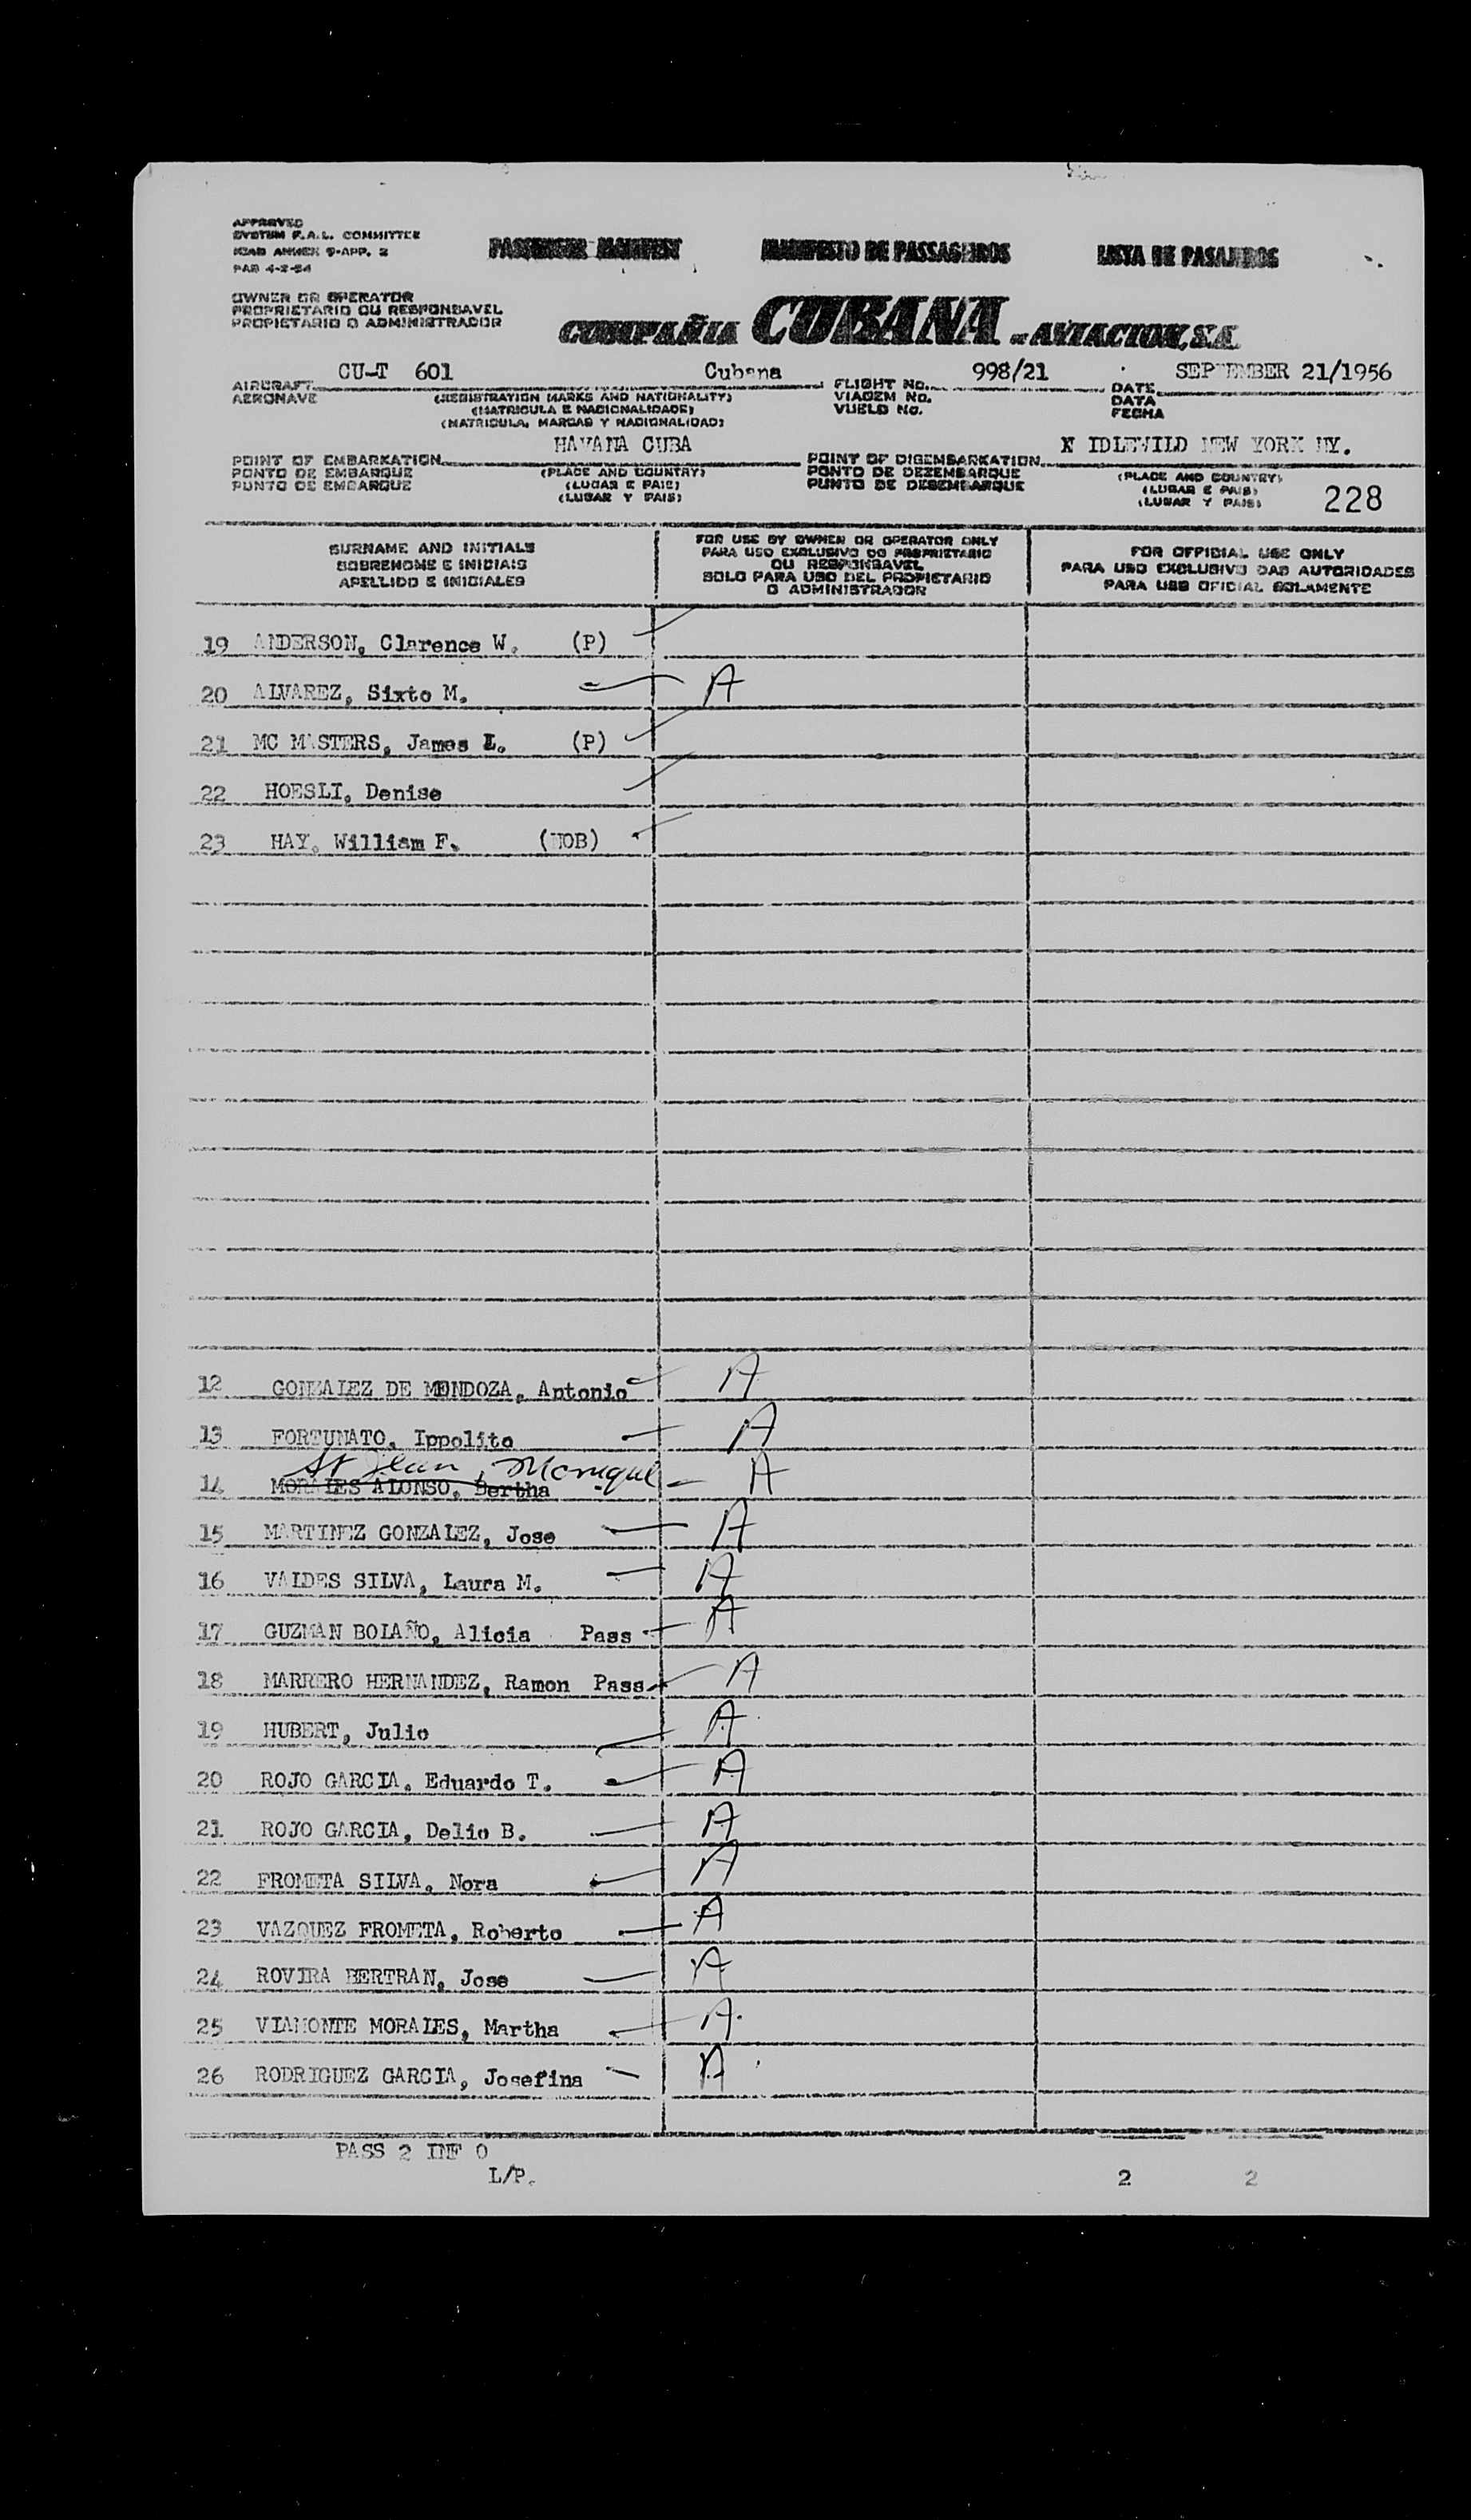 APPROVED
SYSTEM F.A.L. COMMITTEE
ICAO ANNEX 9-APP. 2
PAB 4-2-54
PASSENGER MANIFEST MANIFESTO DE PASSAGEIROS LISTA DE PASAJEROS
OWNER OR OPERATOR
PROPRIETARIO OU RESPONSAVEL
PROPIETARIO O ADMINISTRADOR
COMPAÑIA CUBANA DE AVIACION, S.A.
CU-T 601 Cubana 998/21 SEPTEMBER 21/1956
AIRCRAFT FLIGHT NO. DATE
AERONAVE (REGISTRATION MARKS AND NATIONALITY) VIAGEM NO. DATA
(MATRICULA E NACIONALIDADE) VUELO NO. FECHA
(MATRICULA, MARCAS Y NACIONALIDAD)
HAVANA CUBA X IDLEWILD NEW YORK NY.
POINT OF EMBARKATION POINT OF DISEMBARKATION
PONTO DE EMBARQUE (PLACE AND COUNTRY) PONTO DE DEZEMBARQUE (PLACE AND COUNTRY)
PUNTO DE EMBARQUE (LUGAR E PAIS) PUNTO DE DESEMBARQUE (LUGAR E PAIS)
(LUGAR Y PAIS) (LUGAR Y PAIS) 228
SURNAME AND INITIALS
SOBRENOME E INICIAIS
APELLIDO E INICIALES
FOR USE BY OWNER OR OPERATOR ONLY
PARA USO EXCLUSIVO DO PROPRIETARIO
OU RESPONSAVEL
SOLO PARA USO DEL PROPIETARIO
O ADMINISTRADOR
FOR OFFICIAL USE ONLY
PARA USO EXCLUSIVO DAS AUTORIDADES
PARA USO OFICIAL SOLAMENTE
19 ANDERSON, Clarence W. (P)
20 ALVAREZ, Sixto M. A
21 MC MASTERS, James L. (P)
22 HOESLI, Denise
23 HAY, William F. (NOB)
12 GONZALEZ DE MENDOZA, Antonio A
13 FORTUNATO, Ippolito A
St Jean, Monique
14 MORALES ALONSO, Bertha A
15 MARTINEZ GONZALEZ, Jose A
16 VALDES SILVA, Laura M. A
17 GUZMAN BOLAÑO, Alicia Pass A
18 MARRERO HERNANDEZ, Ramon Pass A
19 HUBERT, Julio A
20 ROJO GARCIA, Eduardo T. A
21 ROJO GARCIA, Delio B. A
22 FROMETA SILVA, Nora A
23 VAZQUEZ FROMETA, Roberto A
24 ROVIRA BERTRAN, Jose A
25 VIAMONTE MORALES, Martha A
26 RODRIGUEZ GARCIA, Josefina A
PASS 2 INF 0
L/P. 2 2